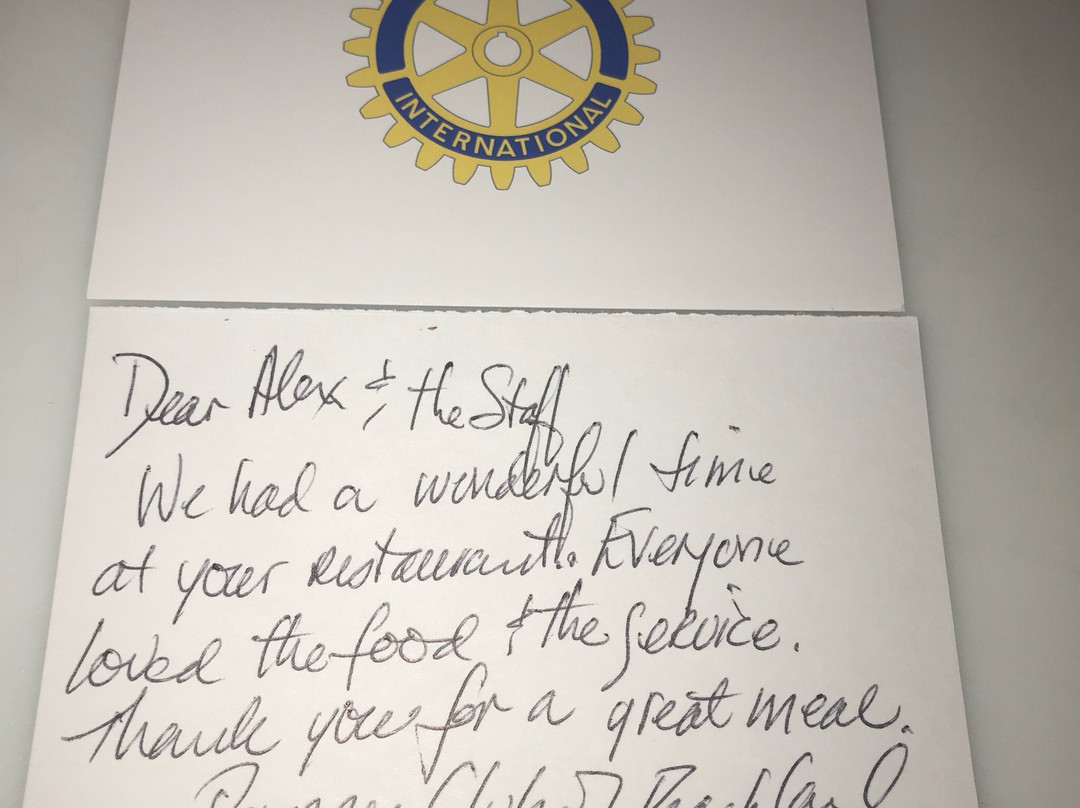 INTERNATIONAL
Dear Alex & the Staff
We had a wonderful time
at your restaurant. Everyone
loved the food & the service.
Thank you for a great meal.